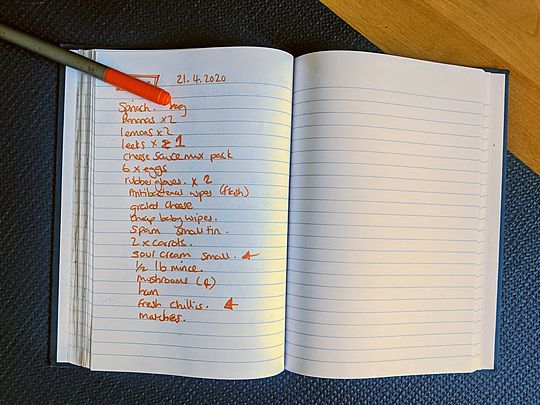 21.4.2020
Spinach. bag
Bananas x2
lemons x2
leeks x 1
cheese sauce mix pack
6 x eggs
rubber gloves. x 2
Antibacterial wipes (flash)
grated cheese
cheap baby wipes.
spam small tin.
2 x carrots.
sour cream small.
½ lb mince.
mushrooms
ham
fresh chillis.
matches.